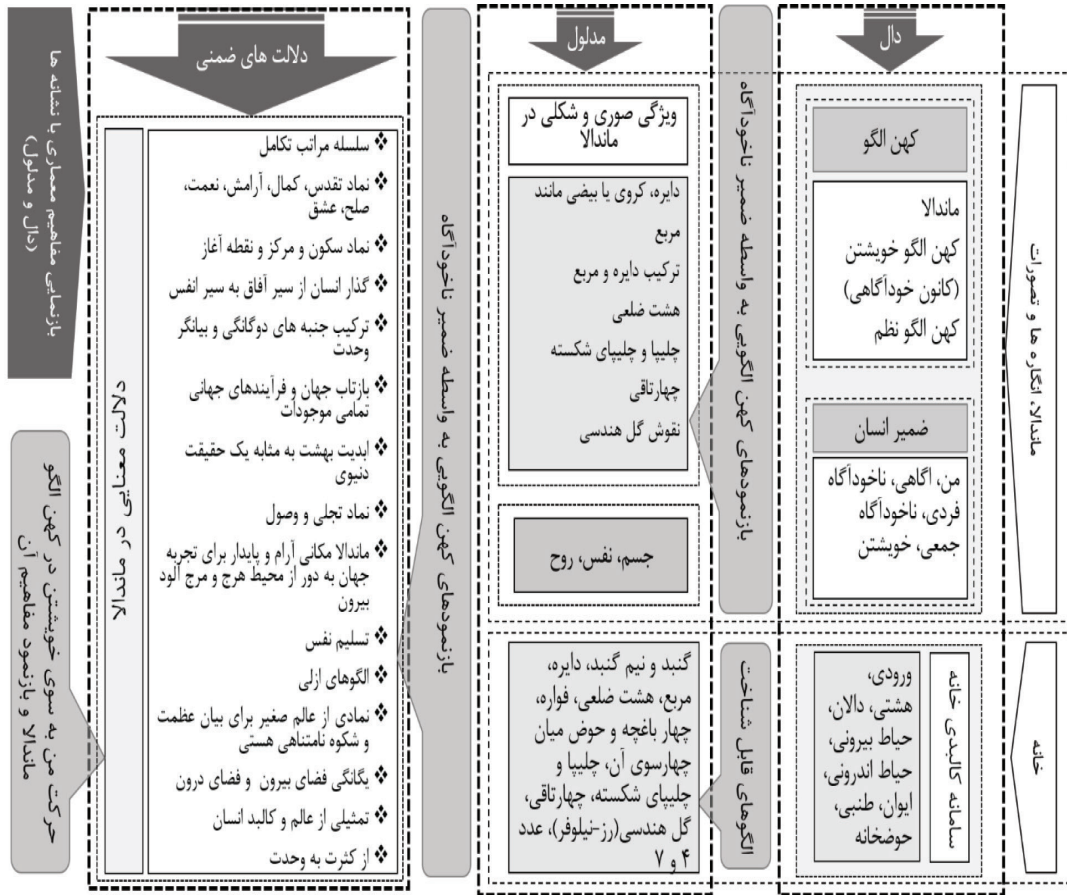 دال
ماندالا، انگاره ها و تصورات
کهن الگو
ماندالا
کهن الگو خویشتن
(کانون خودآگاهی)
کهن الگو نظم
ضمیر انسان
من، اگاهی، ناخودآگاه
فردی، ناخودآگاه
جمعی، خویشتن
خانه
سامانه کالبدی خانه
ورودی،
هشتی، دالان،
حیاط بیرونی،
حیاط اندرونی،
ایوان، طنبی،
حوضخانه
بازنمودهای کهن الگویی به واسطه ضمیر ناخودآگاه
الگوهای قابل شناخت
مدلول
ویژگی صوری و شکلی در
ماندالا
دایره، کروی یا بیضی مانند
مربع
ترکیب دایره و مربع
هشت ضلعی
چلیپا و چلیپای شکسته
چهارتاقی
نقوش گل هندسی
جسم، نفس، روح
گنبد و نیم گنبد، دایره،
مربع، هشت ضلعی، فواره،
چهار باغچه و حوض میان
چهارسوی آن، چلیپا و
چلیپای شکسته، چهارتاقی،
گل هندسی(رز-نیلوفر)، عدد
۴ و ۷
بازنمودهای کهن الگویی به واسطه ضمیر ناخودآگاه
دلالت های ضمنی
❖ سلسله مراتب تکامل
❖ نماد تقدس، کمال، آرامش، نعمت،
صلح، عشق
❖ نماد سکون و مرکز و نقطه آغاز
❖ گذار انسان از سیر آفاق به سیر انفس
❖ ترکیب جنبه های دوگانگی و بیانگر
وحدت
❖ بازتاب جهان و فرآیندهای جهانی
تمامی موجودات
❖ ابدیت بهشت به مثابه یک حقیقت
دنیوی
❖ نماد تجلی و وصول
❖ ماندالا مکانی آرام و پایدار برای تجربه
جهان به دور از محیط هرج و مرج آلود
بیرون
❖ تسلیم نفس
❖ الگوهای ازلی
❖ نمادی از عالم صغیر برای بیان عظمت
و شکوه نامتناهی هستی
❖ یگانگی فضای بیرون و فضای درون
❖ تمثیلی از عالم و کالبد انسان
❖ از کثرت به وحدت
دلالت معنایی در ماندالا
بازنمایی مفاهیم معماری با نشانه ها
(دال و مدلول)
حرکت من به سوی خویشتن در کهن الگو
ماندالا و بازنمود مفاهیم آن